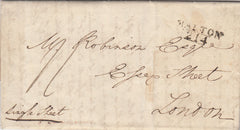 MALTON
214
Mr Robinson Esqre
Essex Street
London
Single Sheet